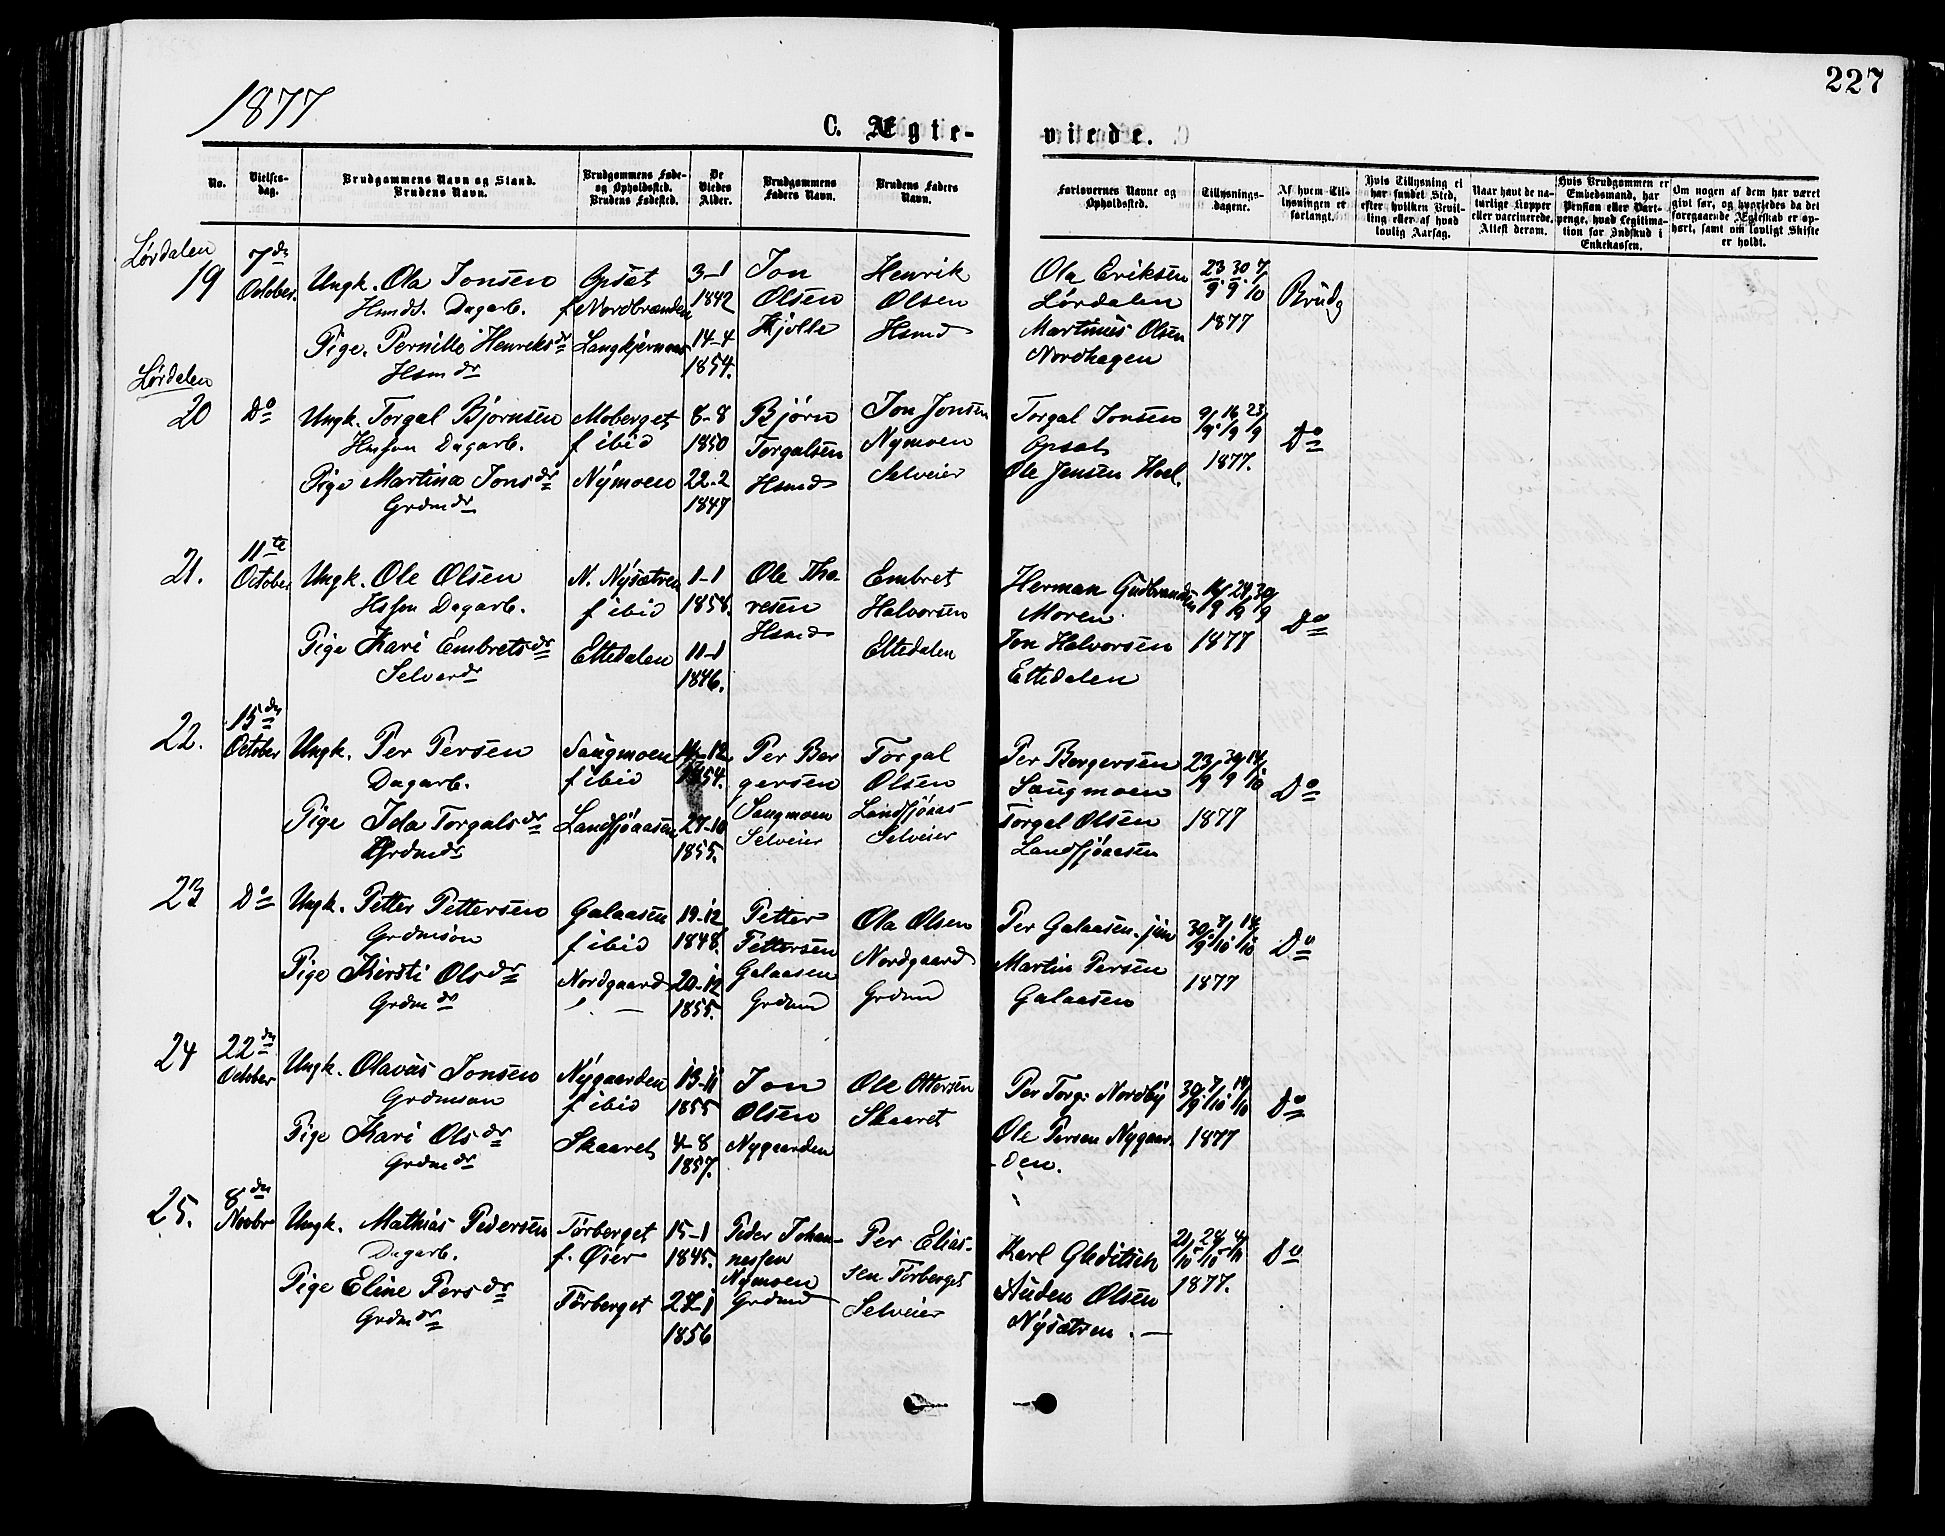 1877
227
C. Ægte-
viede.
No.
Vielses-
dag.
Brudgommens Navn og Stand.
Brudens Navn.
Brudgommens Føde-
og Opholdssted.
Brudens Fødested.
De
Viedes
Alder.
Brudgommens
Faders Navn.
Brudens Faders
Navn.
Forlovernes Navne og
Opholdssted.
Tillysnings-
dagene.
Af hvem Til-
lysningen er
forlangt.
Hvis Tillysning ei
har fundet Sted,
efter hvilken Bevil-
ling eller af hvad
lovlig Aarsag.
Naar havt de na-
turlige Kopper
eller vaccinerede.
Attest derom.
Hvis Brudgommen er
Embedsmand, har
Pension eller Vart-
penge, hvad Legitima-
tion for Indskud i
Enkekassen.
Om nogen af dem har været
gift før, og hvorledes da det
foregaaende Ægteskab er op-
hørt, samt om lovligt Skifte
er holdt.
Lørdalen
19
7de
October.
Ungk. Ola Jonsen
Hmdt. Dagarb.
Pige. Pernille Henriksdr
Hsmdr
Opsat
f Nordbranden
Langkjernaas
3-1
1842
14-4
1854.
Jon
Olsen
Kjølle
Henrik
Olsen
Hsmd
Ola Eriksen
Lørdalen
Martinus Olsen
Nordhagen
23/9 30/9 7/10
1877
Brudg
Lørdalen
20
Do
Ungk. Torgal Bjørnsen
Hmson Dagarb.
Pige Martina Jonsdr
Grdmdr
Moberget
f ibid
Nymoen
8-8
1850
22-2
1847
Bjørn
Torgalsen
Hsmd
Jon Jonsen
Nymoen
Selveier
Torgal Jonsen
Opsat
Ole Jensen Hoel.
9/9 16/9 23/9
1877.
Do
21.
11te
October
Ungk. Ole Olsen
Hsson Dagarb.
Pige Kari Embretsdr
Selverdr
N. Nysætren
f ibid
Eltedalen
1-1
1858.
11-1
1846.
Ole Tho
resen
Hsmd
Embret
Halvorsen
Eltedalen
Herman Gudbrandsen
Moren
Jon Halvorsen
Eltedalen
16/9 24/9 30/9
1877
Do
22.
15de
October
Ungk. Per Persen
Dagarb.
Pige Ida Torgalsdr
Grdmdr
Saugmoen
f ibid
Landsjøaasen
14-12
1854.
27-10
1855.
Per Ber
gersen
Saugmoen
Selveier
Torgal
Olsen
Landsjøaas
Selveier
Per Bergersen
Saugmoen
Torgal Olsen
Landsjøaasen
23/9 30/9 14/10
1877
Do
23
Do
Ungk. Petter Pettersen
Grdmsøn
Pige Kirsti Olsdr
Grdmdr
Galaasen
f ibid
Nordgaard
19-12
1848.
20-12
1855.
Petter
Pettersen
Galaasen
Grdmd
Ola Olsen
Nordgaard
Grdmd
Per Galaasen. jun
Martin Persen
Galaasen
30/9 7/10 14/10
1877
Do
24
22de
October
Ungk. Olavus Jonsen
Grdmsøn
Pige Kari Olsdr
Grdmdr
Nygaarden
f ibid
Skaaret
13-11
1855
4-8
1857.
Jon
Olsen
Nygaarden
Ole Ottersen
Skaaret
Per Torg: Nordby
Ole Persen Nygaar-
den.
30/9 7/10 14/10
1877
Do
25.
8de
Novbr
Ungk. Mathias Pedersen
Dagarb.
Pige Eline Persdr
Grdmdr
Tørberget
f. Øier
Tørberget
15-1
1845.
1856
Peder Johan-
nessen
Nymoen
Grdmd
Per Elias-
sen Tørberget
Selveier
Karl Gleditsch
Auden Olsen
Nysætren. —
21/10 28/10 4/11
1877.
Do